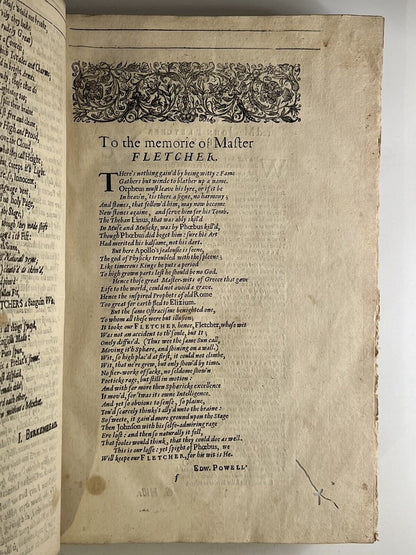 To the memorie of Master
FLETCHER.
THere's nothing gain'd by being witty: Fame
Gathers but winde to blather up a name.
Orpheus must leave his lyre, or if it be
In heav'n, 'tis there a signe, no harmony;
And stones, that follow'd him, may now become
Now stones againe, and serve him for his Tomb.
The Theban Linus, that was ably skil'd
In Muse and Musicke, was by Phœbus kill'd,
Though Phœbus did beget him: sure his Art
Had merited his balsame, not his dart.
But here Apollo's jealousie is seene,
The god of Physicks troubled with the spleene;
Like timerous Kings he puts a period
To high grown parts lest he should be no God.
Hence those great Master-wits of Greece that gave
Life to the world, could not avoid a grave.
Hence the inspired Prophets of old Rome
Too great for earth fled to Elizium.
But the same Ostracisme benighted one,
To whom all these were but illusion;
It tooke our FLETCHER hence, Fletcher, whose wit
Was not an accident to th' soule, but It;
Onely diffus'd. (Thus wee the same Sun call,
Moving it'h Sphære, and shining on a wall.)
Wit, so high plac'd at first, it could not climbe,
Wit, that ne're grew, but only show'd by time.
No fier-worke of sacke, no seldome show'n
Poeticke rage, but still in motion:
And with far more then Sphæricke excellence
It mov'd, for 'twas its owne Intelligence.
And yet so obvious to sense, so plaine,
You'd scarcely thinke't ally'd unto the braine:
So sweete, it gain'd more ground upon the Stage
Then Johnson with his selfe-admiring rage
Ere lost: and then so naturally it fell,
That fooles would think, that they could doe as well.
This is our losse: yet spight of Phœbus, we
Will keepe our FLETCHER, for his wit is He.
EDW. POWELL
f
I. BERKENHEAD.